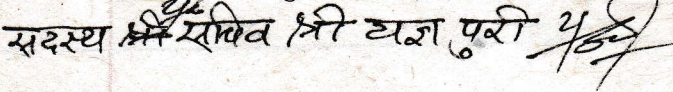 सदस्य सचिव श्री यज्ञ पुरी